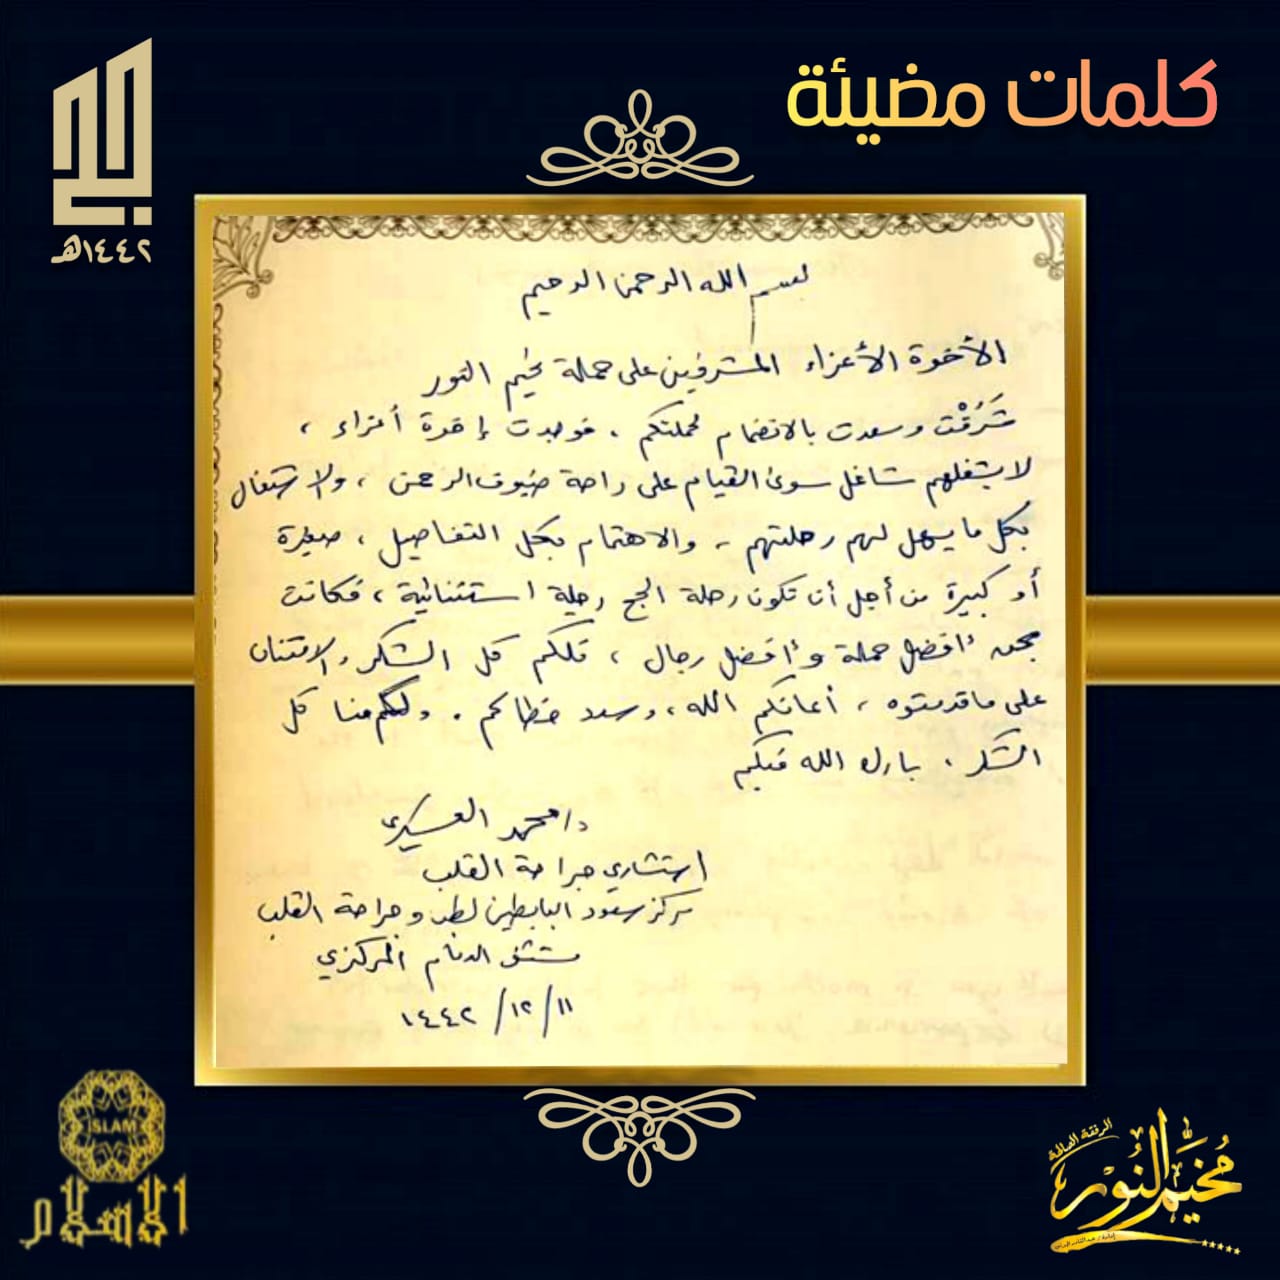 كلمات مضيئة
١٤٤٢هـ
بسم الله الرحمن الرحيم
الأخوة الأعزاء المشرفين على حملة مخيم النور
شَرُفْت وسعدت بالانضمام لحملتكم . فوجدت إخوة أعزاء ،
لا يشغلهم شاغل سوى القيام على راحة ضيوف الرحمن ، والاشتغال
بكل ما يسهل لهم رحلتهم - والاهتمام بكل التفاصيل ، صغيرة
أو كبيرة من أجل أن تكون رحلة الحج رحلة استثنائية ، فكانت
بحق أفضل حملة وأفضل رجال ، فلكم كل الشكر والامتنان
على ما قدمتوه ، أعانكم الله ، وسدد خطاكم . ولكم منا كل
الشكر . بارك الله فيكم
د/محمد العسكري
استشاري جراحة القلب
مركز سعود البابطين لطب وجراحة القلب
مستشفى الدمام المركزي
١١/ ١٢/ ١٤٤٢
ISLAM
الإسلام
الرفقة الصالحة
مخيم النور